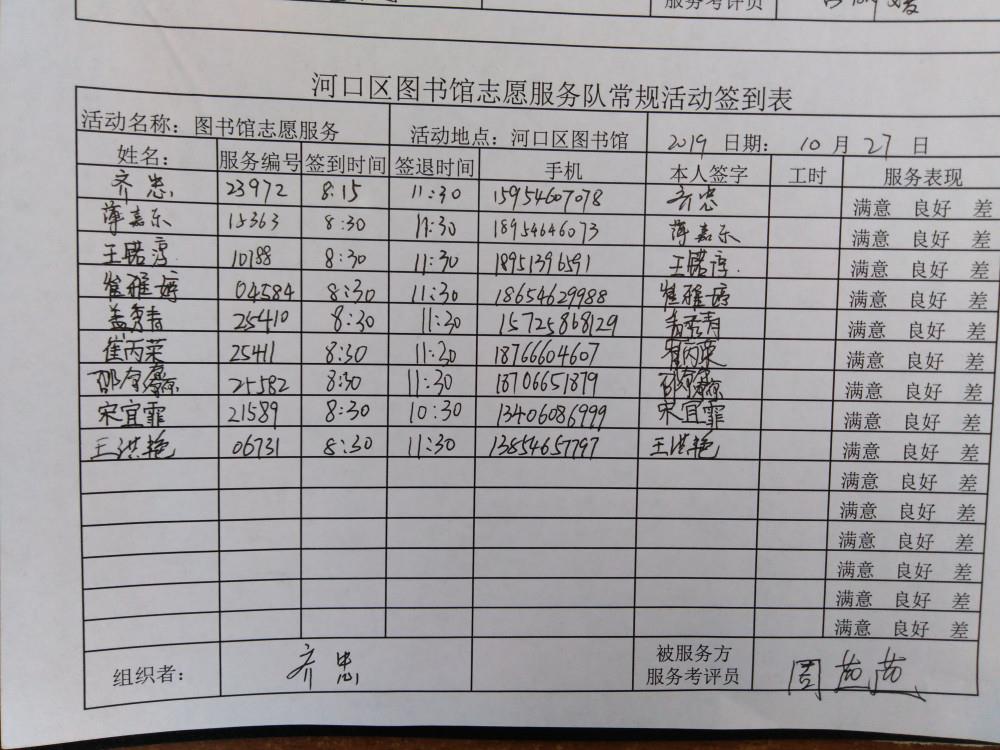 服务考评员
河口区图书馆志愿服务队常规活动签到表
活动名称：图书馆志愿服务 活动地点：河口区图书馆 2019 日期： 10 月 27 日
姓名： 服务编号 签到时间 签退时间 手机 本人签字 工时 服务表现
齐忠 23972 8:15 11:30 15954607078 齐忠 满意 良好 差
薄嘉乐 15363 8:30 11:30 18954646073 薄嘉乐 满意 良好 差
王 10788 8:30 11:30 18951396591 王 满意 良好 差
崔雅婷 04584 8:30 11:30 18654629988 崔雅婷 满意 良好 差
盖秀青 25410 8:30 11:30 15725868129 盖秀青 满意 良好 差
崔丙荣 25411 8:30 11:30 18766604607 崔丙荣 满意 良好 差
邵 25582 8:30 11:30 18706651879 邵 满意 良好 差
宋宜霏 21589 8:30 10:30 13406086999 宋宜霏 满意 良好 差
王洪艳 06731 8:30 11:30 13854657797 王洪艳 满意 良好 差
满意 良好 差
满意 良好 差
满意 良好 差
满意 良好 差
满意 良好 差
满意 良好 差
组织者： 齐忠 被服务方
服务考评员 周